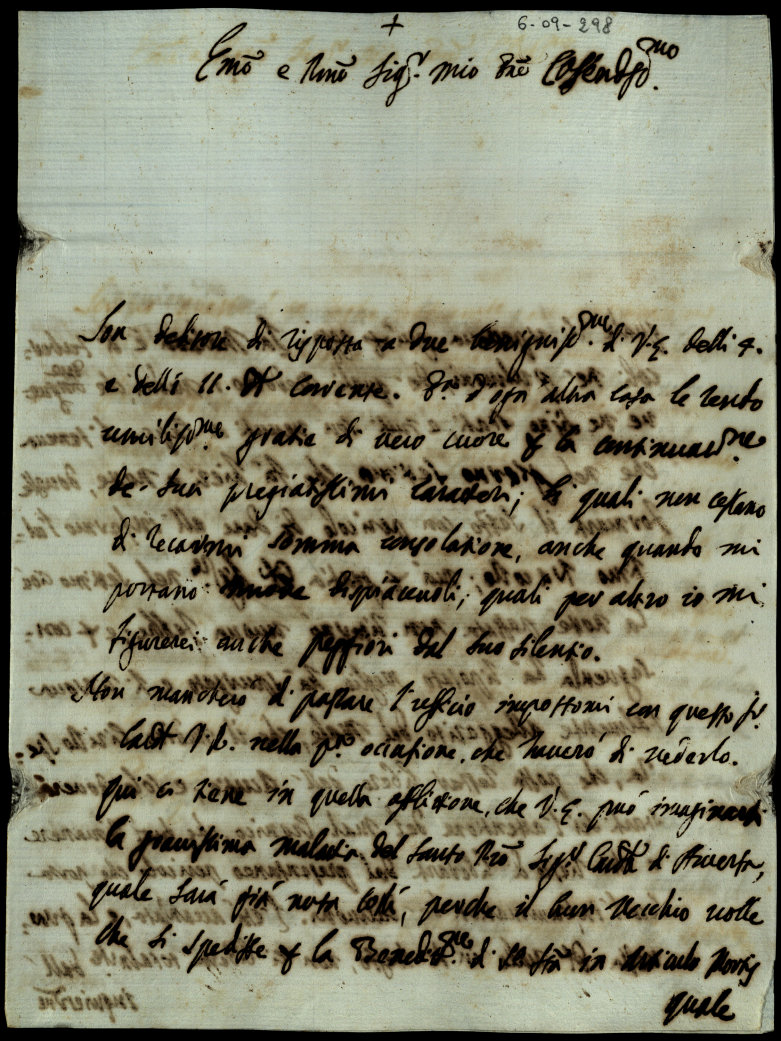 +
6-09-298
Emõ e Rmõ Sigr. mio Prõe Colendmo.
Son debitore di risposta a due benignisme. di V.E. delli 4.
e delli 11. del corrente. Pa. d'ogn'altra cosa le rendo
umilisme gratie di vero cuore p la continuane.
de suoi pregiatissimi caratteri; li quali non cessano
di recarmi somma consolatione, anche quando mi
portano nuove dispiacevoli; quali per altro io mi
figurerei anche peggiori dal suo silentio.
Non mancherò di passare l'ufficio impostomi con questo Sr.
Card V.L. nella pa. occasione, che haverò di vederlo.
Qui ci tiene in quella afflictione, che V.E. può imaginarsi
la gravissima malatia del Santo Nrõ Sigr Cardl di Aversa,
quale sarà già nota costì, perche il buon Vecchio volle
che si spedisse p la Benedne. di Sa Stà in Articulo Mortis
quale